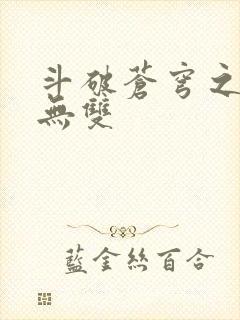 斗破蒼穹之
無雙
藍金絲百合